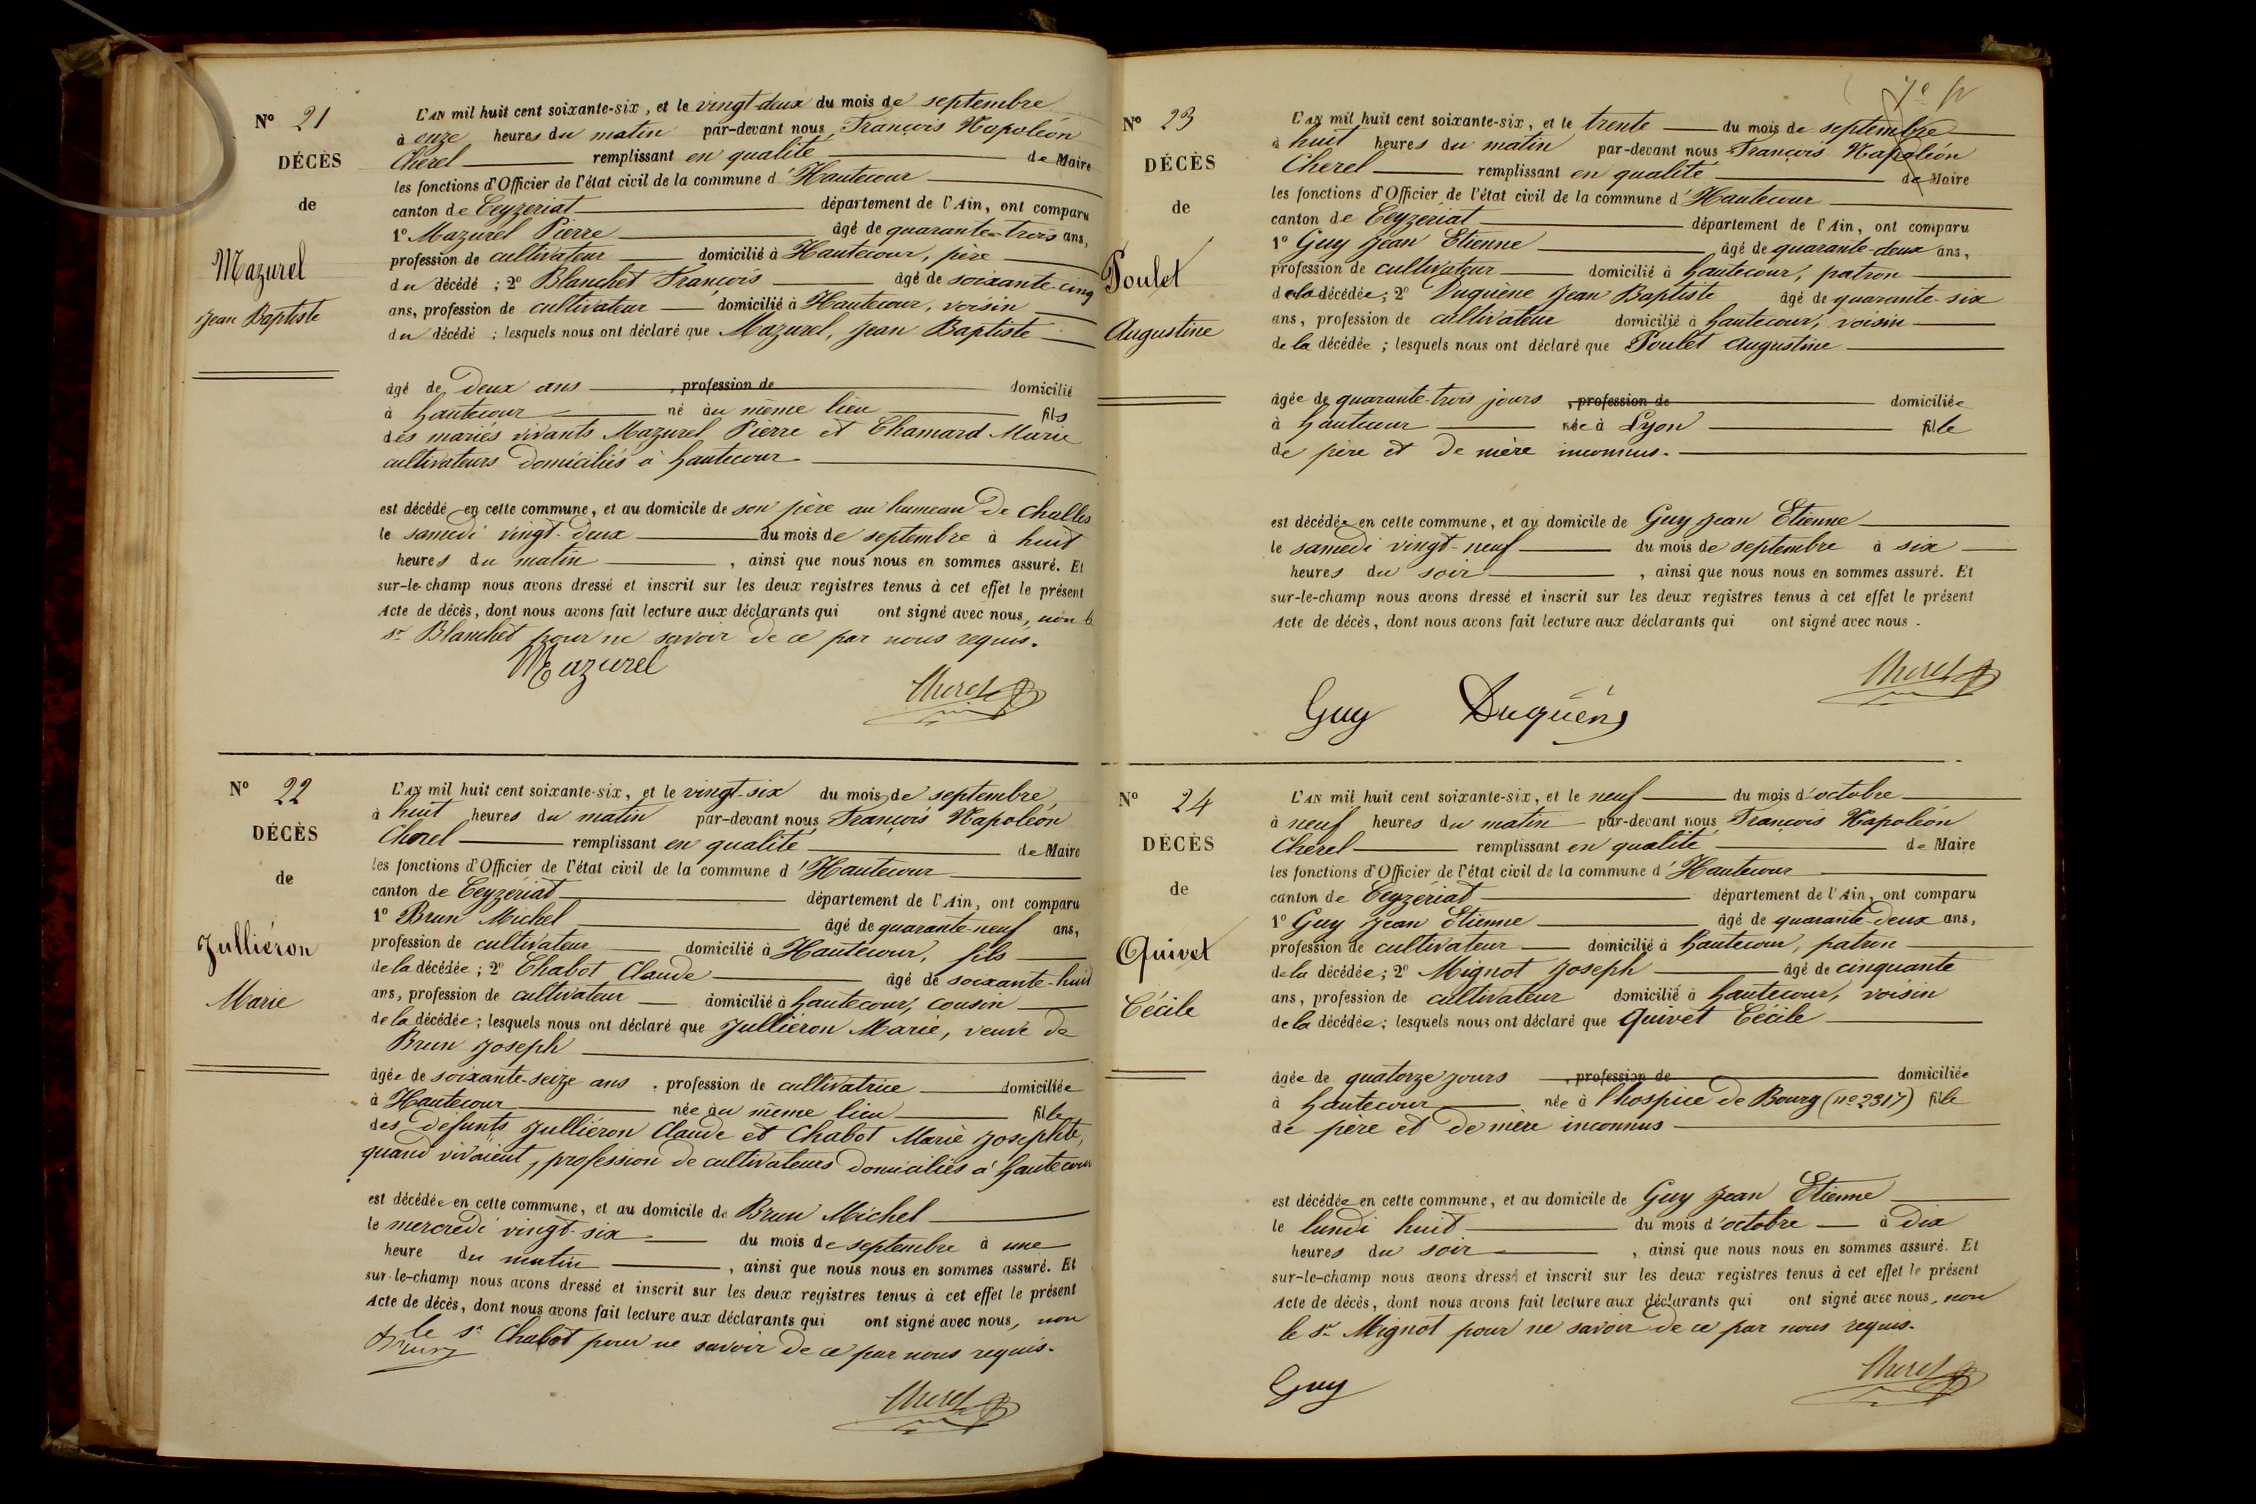 Nº 21
DÉCÈS
de
Mazurel
Jean Baptiste
L'AN mil huit cent soixante-six, et le vingt-deux du mois de septembre
à onze heures du matin par-devant nous François Napoléon
Cherel remplissant en qualité de Maire
les fonctions d'Officier de l'état civil de la commune d'Hautecour
canton de Ceyzériat département de l'Ain, ont comparu
1º Mazurel Pierre âgé de quarante-trois ans,
profession de cultivateur domicilié à Hautecour, père
du décédé ; 2º Blanchet François âgé de soixante-cinq
ans, profession de cultivateur domicilié à Hautecour, voisin
du décédé ; lesquels nous ont déclaré que Mazurel, Jean Baptiste
âgé de deux ans , profession de domicilié
à hautecour né au même lieu fils
des mariés vivants Mazurel Pierre et Chamard Marie
cultivateurs domiciliés à hautecour
est décédé en cette commune, et au domicile de son père au hameau de Challes
le samedi vingt-deux du mois de septembre à huit
heures du matin , ainsi que nous nous en sommes assuré. Et
sur-le-champ nous avons dressé et inscrit sur les deux registres tenus à cet effet le présent
Acte de décès, dont nous avons fait lecture aux déclarants qui ont signé avec nous, non le
sr Blanchet pour ne savoir de ce par nous requis.
Mazurel
Cherel
Nº 22
DÉCÈS
de
Julliéron
Marie
L'AN mil huit cent soixante-six, et le vingt-six du mois de septembre
à huit heures du matin par-devant nous François Napoléon
Cherel remplissant en qualité de Maire
les fonctions d'Officier de l'état civil de la commune d'Hautecour
canton de Ceyzériat département de l'Ain, ont comparu
1º Brun Michel âgé de quarante-neuf ans,
profession de cultivateur domicilié à Hautecour, fils
de la décédée ; 2º Chabot Claude âgé de soixante-huit
ans, profession de cultivateur domicilié à hautecour, cousin
de la décédée ; lesquels nous ont déclaré que Julliéron Marie, veuve de
Brun Joseph
âgée de soixante-seize ans , profession de cultivatrice domiciliée
à Hautecour née au même lieu fille
des défunts Julliéron Claude et Chabot Marie Josephte,
quand vivaient, profession de cultivateurs domiciliés à hautecour
est décédée en cette commune, et au domicile de Brun Michel
le mercredi vingt-six du mois de septembre à une
heure du matin , ainsi que nous nous en sommes assuré. Et
sur-le-champ nous avons dressé et inscrit sur les deux registres tenus à cet effet le présent
Acte de décès, dont nous avons fait lecture aux déclarants qui ont signé avec nous, non
le sr Chabot pour ne savoir de ce par nous requis.
Brun
Cherel
Nº 23
DÉCÈS
de
Poulet
Augustine
L'AN mil huit cent soixante-six, et le trente du mois de septembre
à huit heures du matin par-devant nous François Napoléon
Cherel remplissant en qualité de Maire
les fonctions d'Officier de l'état civil de la commune d'Hautecour
canton de Ceyzériat département de l'Ain, ont comparu
1º Guy Jean Etienne âgé de quarante-deux ans,
profession de cultivateur domicilié à hautecour, patron
de la décédée ; 2º Duquène Jean Baptiste âgé de quarante-six
ans, profession de cultivateur domicilié à hautecour, voisin
de la décédée ; lesquels nous ont déclaré que Poulet Augustine
âgée de quarante-trois jours , profession de domiciliée
à hautecour née à Lyon fille
de père et de mère inconnus.
est décédée en cette commune, et au domicile de Guy Jean Etienne
le samedi vingt-neuf du mois de septembre à six
heures du soir , ainsi que nous nous en sommes assuré. Et
sur-le-champ nous avons dressé et inscrit sur les deux registres tenus à cet effet le présent
Acte de décès, dont nous avons fait lecture aux déclarants qui ont signé avec nous .
Cherel
Guy Duquène
Nº 24
DÉCÈS
de
Quivet
Cécile
L'AN mil huit cent soixante-six, et le neuf du mois d'octobre
à neuf heures du matin par-devant nous François Napoléon
Cherel remplissant en qualité de Maire
les fonctions d'Officier de l'état civil de la commune d'Hautecour
canton de Ceyzériat département de l'Ain, ont comparu
1º Guy Jean Etienne âgé de quarante-deux ans,
profession de cultivateur domicilié à hautecour, patron
de la décédée ; 2º Mignot Joseph âgé de cinquante
ans, profession de cultivateur domicilié à hautecour, voisin
de la décédée ; lesquels nous ont déclaré que Quivet Cécile
âgée de quatorze jours , profession de domiciliée
à hautecour née à l'hospice de Bourg (nº 2317) fille
de père et de mère inconnus
est décédée en cette commune, et au domicile de Guy Jean Etienne
le lundi huit du mois d'octobre à dix
heures du soir , ainsi que nous nous en sommes assuré. Et
sur-le-champ nous avons dressé et inscrit sur les deux registres tenus à cet effet le présent
Acte de décès, dont nous avons fait lecture aux déclarants qui ont signé avec nous, non
le sr Mignot pour ne savoir de ce par nous requis.
Cherel
Guy